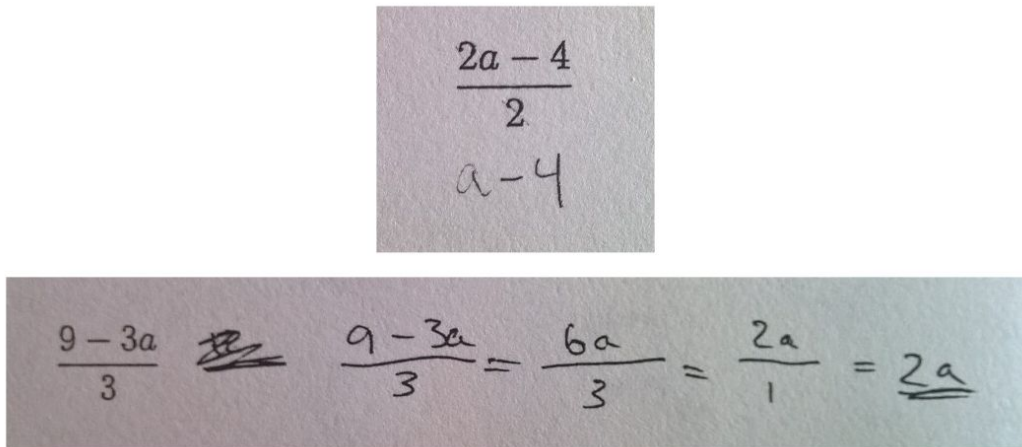 \frac{2a - 4}{2}
a - 4
\frac{9 - 3a}{3} \frac{9 - 3a}{3} = \frac{6a}{3} = \frac{2a}{1} = 2a